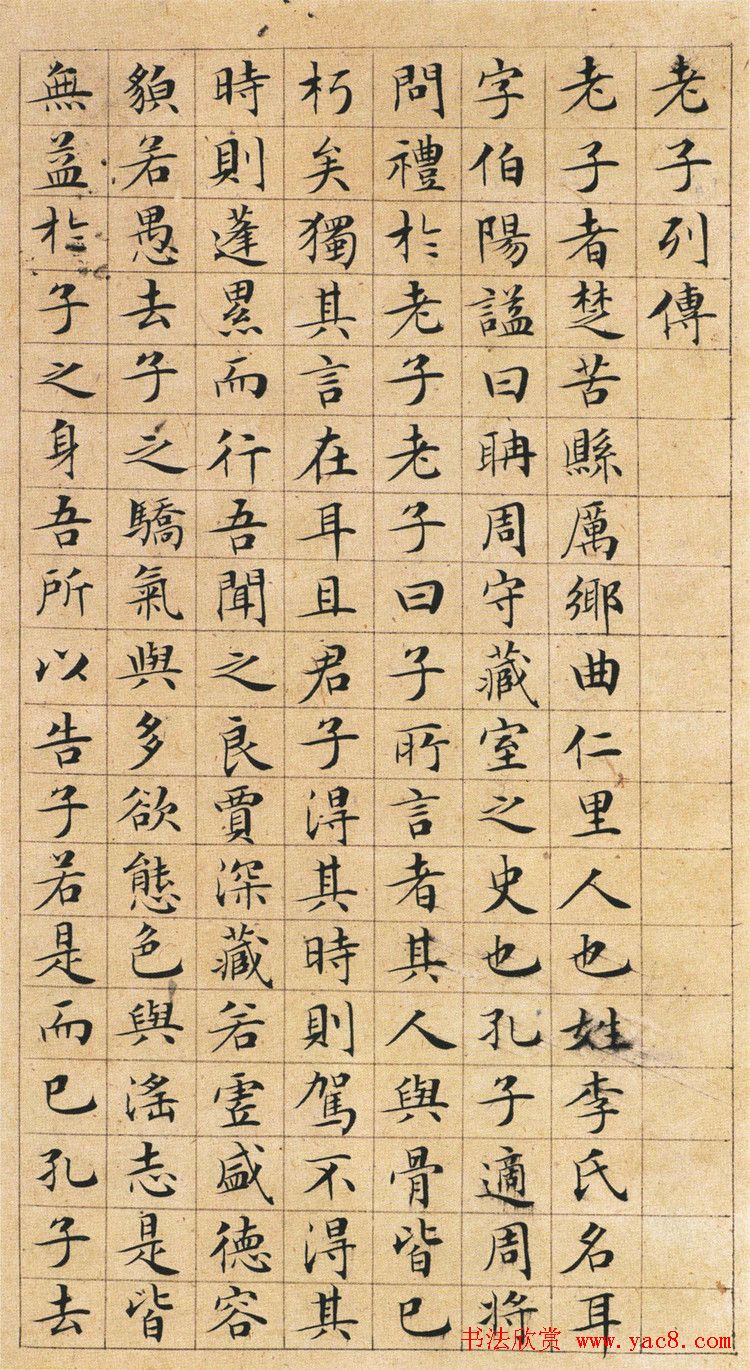 老子列傳
老子者楚苦縣厲鄉曲仁里人也姓李氏名耳
字伯陽謚曰聃周守藏室之史也孔子適周將
問禮於老子老子曰子所言者其人與骨皆已
朽矣獨其言在耳且君子得其時則駕不得其
時則蓬累而行吾聞之良賈深藏若虛盛德容
貌若愚去子之驕氣與多欲態色與滛志是皆
無益於子之身吾所以告子若是而已孔子去
书法欣赏 www.yac8.com